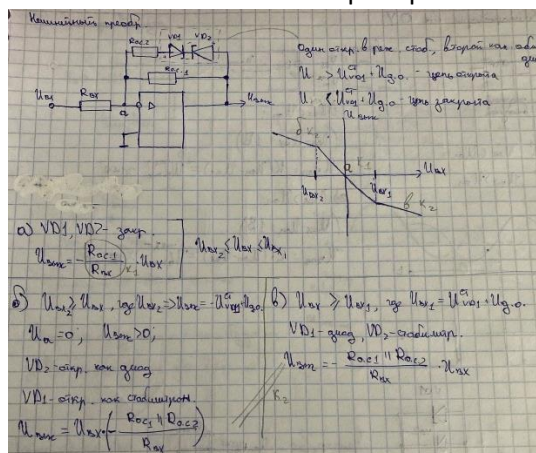 Нелинейный преобр.
Rос2 VD1 VD2
Rос1
Uвх Rвх a Uвых
Один откр. в реж. стаб, второй как обы
U > Uст VD1 + Uд.о - цепь открыта
U < Uст VD1 + Uд.о - цепь закрыта
Uвых
б K2 K1
a Uвх
Uвх2 Uвх1
в K2
а) VD1, VD2 - закр.
Uвых = - Rос1 / Rвх K1 · Uвх Uвх2 ≤ Uвх ≤ Uвх1
б) Uвх2 ≥ Uвх, где Uвх2 => Uвых = -Uст VD1 - Uд.о.
Ua = 0, Uвых > 0;
VD2 - откр. как диод
VD1 - откр. как стабилитрон.
Uвых = Uвх · (- Rос1 || Rо.с2 / Rвх)
K2
в) Uвх ≥ Uвх1, где Uвх1 = Uст VD1 + Uд.о.
VD1 - диод, VD2 - стабилитр.
Uвых = - Rос1 || Rос2 / Rвх · Uвх